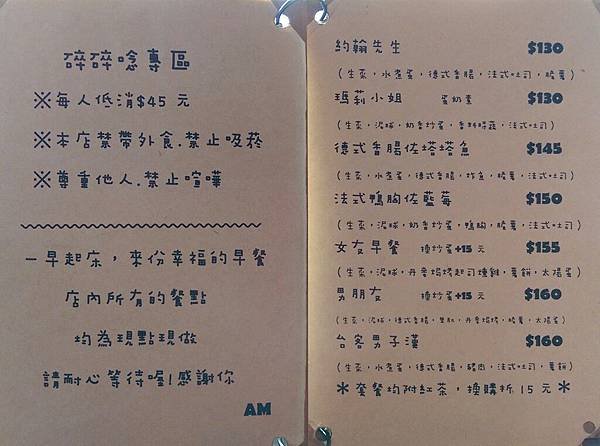 碎碎唸專區
※每人低消$45 元
※本店禁帶外食.禁止吸菸
※尊重他人.禁止喧嘩
一早起床，來份幸福的早餐
店內所有的餐點
均為現點現做
請耐心等待喔!感謝你
AM
約翰先生 $130
(生菜，水煮蛋，德式香腸，法式吐司，脆薯)
瑪莉小姐 蛋奶素 $130
(生菜，泥球，奶香炒蛋，香料時蔬，法式吐司)
德式香腸佐塔塔魚 $145
(生菜，水煮蛋，德式香腸，炸魚，脆薯，法式吐司)
法式鴨胸佐藍莓 $150
(生菜，泥球，奶香炒蛋，鴨胸，脆薯，法式吐司)
女友早餐 換炒蛋+15 元 $155
(生菜，泥球，丹麥焗烤起司燻雞，薯餅，太陽蛋)
男朋友 換炒蛋+15 元 $160
(生菜，泥球，德式香腸，里肌，丹麥焗烤，脆薯，太陽蛋)
台客男子漢 $160
(生菜，水煮蛋，德式香腸，豬肉，法式吐司，薯餅)
＊套餐均附紅茶，換購折 15 元＊